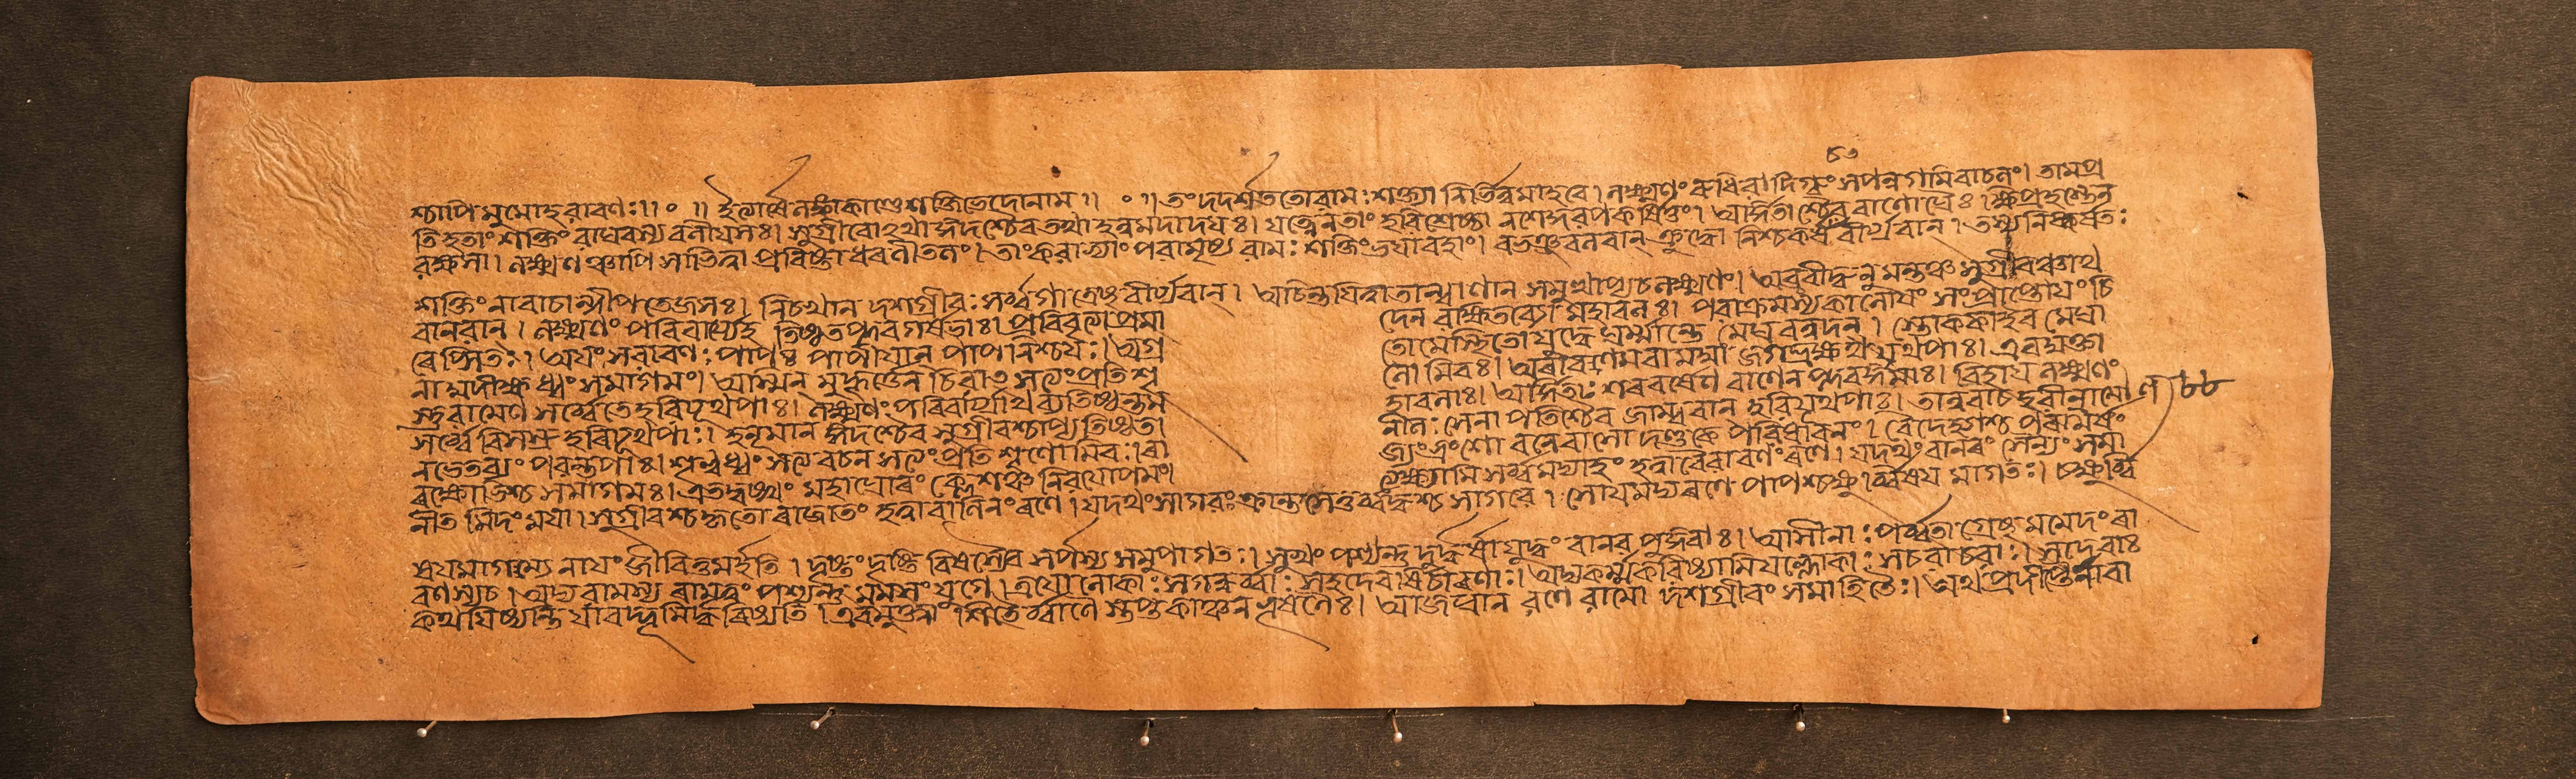 ৮৩
শ্চাপি মুমোহ রাবণঃ।। ০ ।। ইত্যার্ষে লঙ্কাকাণ্ডে শক্তিভেদোনাম।। ০ ।। তং দদর্শ ততো রামঃ শক্ত্যা নির্ভিন্নমাহবে। লক্ষ্মণং রুধিরাদিগ্ধং সপন্নগামিবাচলং। তামপ্র
তিহতাং শক্তিং রাঘবস্য বলীয়সঃ। সুগ্রীবোঽথাঙ্গদশ্চৈব তথা হনুমদাদয়ঃ। যত্নেন তাং হরিশ্রেষ্ঠা ন শেকুরপকর্ষিতুং। আর্দ্দিতাশ্চৈব বাণৌঘৈঃ। ক্ষিপ্রহস্তেন
রক্ষসা। লক্ষ্মণঞ্চাপি সাভিত্ত্বা প্রবিষ্টা ধরণীতলং। তাং করাভ্যাং পরামৃষ্য রামঃ শক্তিং ভয়াবহাং। বভঞ্জ বলবান্ ক্রুদ্ধো নিশ্চকর্ষ বীর্য্যবান্। তস্য নিষ্কর্ষতঃ
শক্তিং নারাচান্দীপ্ততেজসঃ। নিচখান দশগ্রীবঃ সর্ব্বগাত্রেষু বীর্য্যবান্। অচিন্তয়িত্বা তান্ বাণান্ সমুত্থাপ্য চ লক্ষ্মণং। অব্রবীদ্ধনুমন্তঞ্চ সুগ্রীবঞ্চাথ
বানরান্। লক্ষ্মণং পরিবার্য্যেহ তিষ্ঠত প্লবগর্ষভাঃ। প্রমাদেন রক্ষিতব্যো মহাবলঃ। পরাক্রমস্য কালোয়ং সংপ্রাপ্তোয়ং চি
রেপ্সিতঃ। অয়ং স রাবণঃ পাপঃ পাপীয়ান্ পাপনিশ্চয়ঃ। অগ্রতো মে স্থিতো যুদ্ধে ঘর্ম্মান্তে মেঘবন্নদন্। স্তোককাইব মেঘা
না মুদীক্ষধ্বং সমাগমং। অস্মিন্ মুহূর্ত্তেন চিরাত সত্যং প্রতিশৃণোমি বঃ। অরাবণমরামম্বা জগদ্দ্রক্ষ্যথ যূথপাঃ। এবমুক্তা
স্তু রামেণ সর্ব্বে তে হরিযূথপাঃ। লক্ষ্মণং পরিবার্য্যাথ ব্যতিষ্ঠন্তমহাবলাঃ। অর্দ্দিতাঃ শরবর্ষেণ বাণেন প্লবঙ্গমাঃ। বিহায় লক্ষ্মণং
সর্ব্বে বিসসৃ হরিযূথপাঃ। হনূমানঙ্গদশ্চৈব সুগ্রীবশ্চাপ্যতিষ্ঠত। নীলঃ সেনাপতিশ্চৈব জাম্ববান হরিযূথপাঃ। তানুবাচ হরীন্ রামো ৮৮
ন ভেতব্যং পরন্তপাঃ। শৃণুধ্বং সত্যবচন সত্যং প্রতিশৃণোমি বঃ। রাজ্যং ভ্রংশো বনে বাসো দণ্ডকে পরিধাবনং। বৈদেহ্যাশ্চ পরামর্ষং
রক্ষোভিশ্চ সমাগমঃ। এতদ্দুঃখং মহাঘোরং ক্লেশঞ্চ নিরয়োপমং। ত্যক্ষ্যামি সর্ব্বমদ্যাহং হত্বা বৈ রাবণং রণে। যদর্থং বানরং সৈন্যং সমা
নীতমিদং ময়া। সুগ্রীবশ্চ কৃতো রাজাতং হত্বা বালিনং রণে। যদর্থং সাগরঃ ক্রান্ত সেতুর্ব্বদ্ধশ্চ সাগরে। সোয়মদ্য রণে পাপশ্চক্ষুর্ব্বিষয়মাগতঃ। চক্ষুর্ব্বি
ষয়মাগম্য নায়ং জীবিতুমর্হতি। দৃষ্টিং দৃষ্টি বিষস্যেব সর্পস্য সমুপাগতঃ। সুখং পশ্যন্তু দুর্দ্ধর্ষা যুদ্ধং বানরপুঙ্গবাঃ। আসীনাঃ পর্ব্বতাগ্রেষু মমেদং রা
বণস্য চ। অদ্য রামস্য রামত্বং পশ্যন্তু মম সংযুগে। ত্রয়ো লোকাঃ সগন্ধর্ব্বাঃ সহদেবর্ষিচারণাঃ। অদ্য কর্ম্ম করিষ্যামি যল্লোকাঃ সচরাচরাঃ। সদেবাঃ
কথয়িষ্যন্তি যাবদ্ভূমির্দ্ধরিষ্যতি। এবমুক্ত্বা শিতৈর্ব্বাণৈস্তপ্তকাঞ্চনভূষণৈঃ। আজঘান রণে রামো দশগ্রীবং সমাহিতৈঃ। অথ প্রদীপ্তৈর্নারা